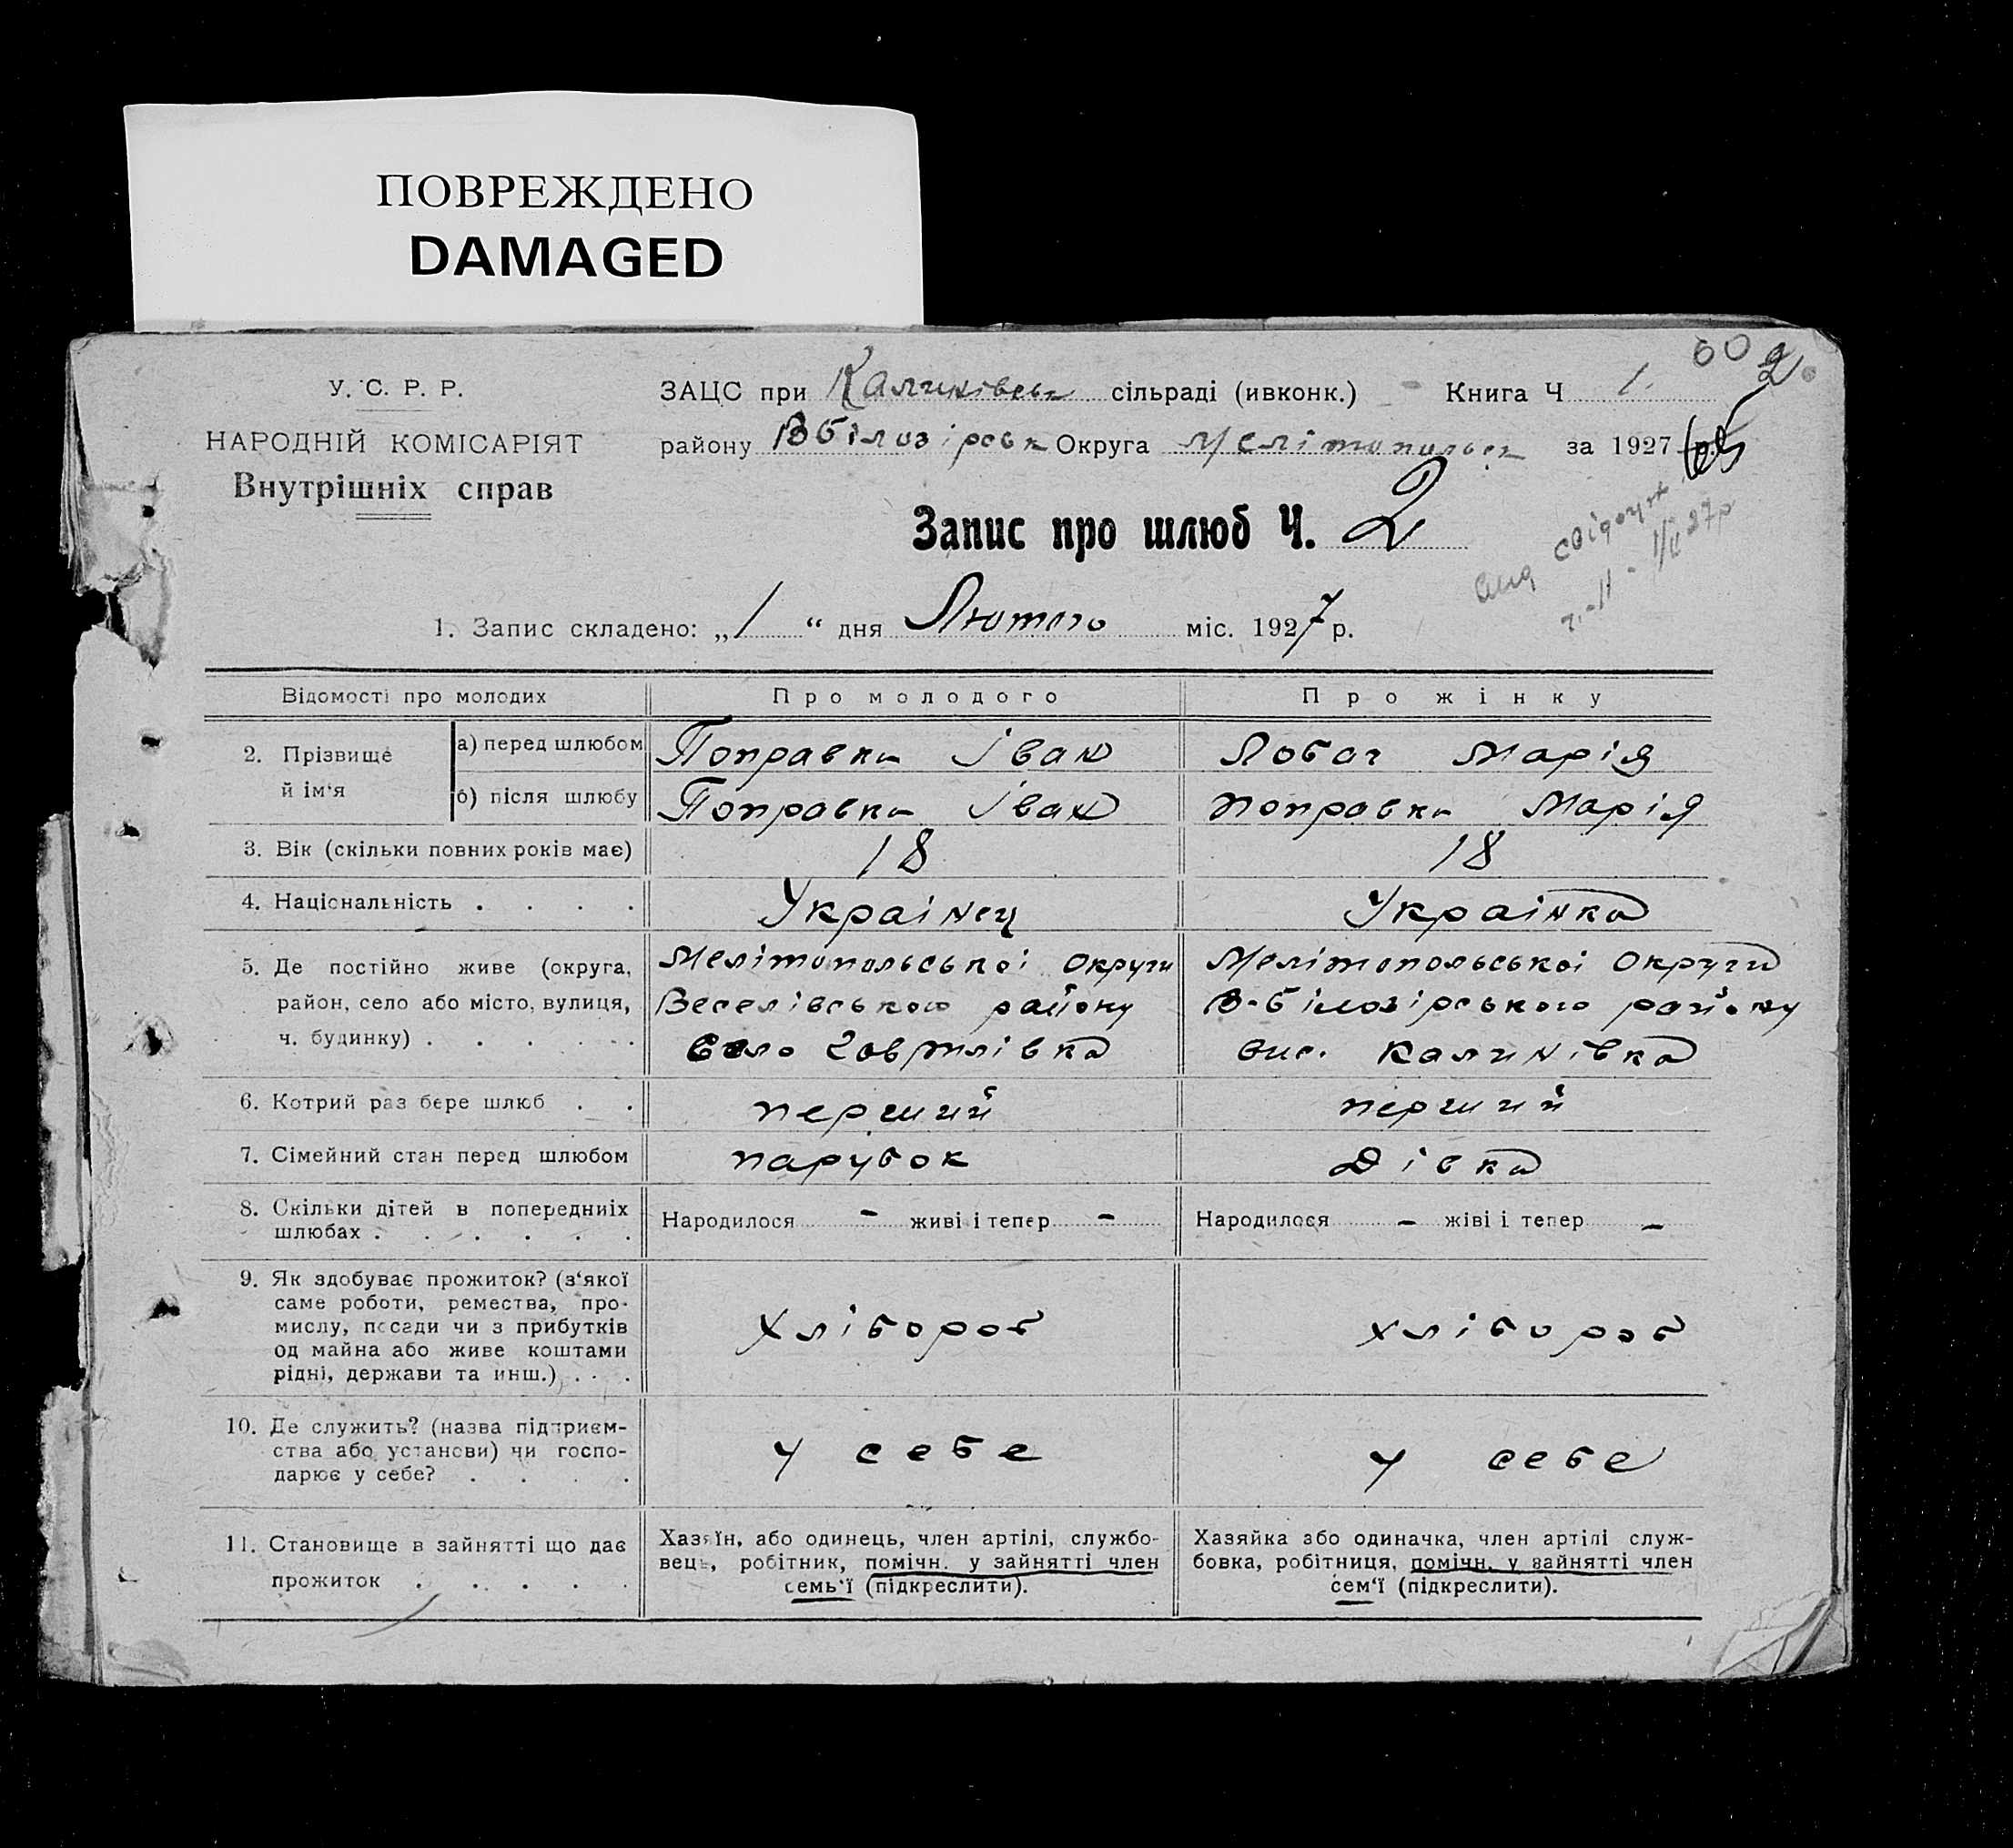 ПОВРЕЖДЕНО
DAMAGED
У. С. Р. Р.
НАРОДНІЙ КОМІСАРІЯТ
Внутрішніх справ
ЗАЦС при Калинівськ сільраді (ивконк.) Книга Ч 1.
району ВБілозірськ Округа Мелітопольськ за 1927 р.
60 2
Запис про шлюб Ч. 2
вид свідоцтв
ч. 11 - 1/II 27р
1. Запис складено: „1“ дня Лютого міс. 1927 р.
Відомості про молодих Про молодого Про жінку
2. Прізвище й ім'я
а) перед шлюбом Поправка Іван Лобач Марія
б) після шлюбу Поправка Іван Поправка Марія
3. Вік (скільки повних років має) 18 18
4. Національність . . . . Украінец Украінка
5. Де постійно живе (округа, Мелітопольської Округи Мелітопольської Округи
район, село або місто, вулиця, Веселівського району В-Білозірського району
ч. будинку) . . . . . . Село Гаврилівка вис. Калинівка
6. Котрий раз бере шлюб . . перший перший
7. Сімейний стан перед шлюбом парубок Дівка
8. Скільки дітей в попередниіх
шлюбах . . . . . . Народилося - живі і тепер - Народилося - жіві і тепер -
9. Як здобуває прожиток? (з'якої
саме роботи, ремества, про-
мислу, посади чи з прибутків
од майна або живе коштами
рідні, держави та инш.) . . . хлібороб хлібороб
10. Де служить? (назва підприєм-
ства або установи) чи госпо-
дарює у себе? . . . . у себе у себе
11. Становище в зайнятті що дає
прожиток . . . . .
Хазяїн, або одинець, член артілі, службо-
вець, робітник, помічн. у зайнятті член
семь'ї (підкреслити).
Хазяйка або одиначка, член артілі служ-
бовка, робітниця, помічн. у зайнятті член
сем'ї (підкреслити).